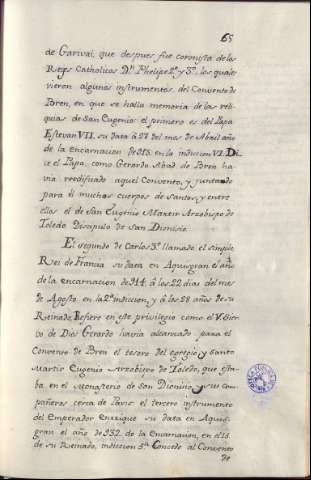 65
de Garivai, que despues fue coronista de los
Reyes Catholicos Dn. Phelipe 2º y 3º, los quales
vieron algunos instrumentos del Convento de
Bren, en que se halla memoria de las reli-
quias de San Eugenio: el primero es del Papa
Estevan VII. su data à 27 del mes de Abril año
de la encarnacion de 913. en la indicion VI. Di
ce el Papa, como Gerardo Abad de Bren ha
via reedificado aquel Convento, y juntando
para èl muchos cuerpos de Santos, y entre
ellos el de San Eugenio Martir Arzobispo de
Toledo Discipulo de San Dionisio.
El segundo de Carlos 3º llamado el simple
Rei de Francia su data en Aquisgran el año
de la encarnacion de 914. à los 22 dias del mes
de Agosto, en la 2ª indicion, y à los 28 años de su
Reinado Refiere en este privilegio como el V. Sier-
vo de Dios Gerardo havia alcanzado para el
Convento de Bren el tesoro del egregio, y Santo
Martir Eugenio Arzobispo de Toledo, que esta-
ba en el Monasterio de San Dionisio, y sus com
pañeros cerca de Paris: el tercero instrumento
del Emperador Enrrique su data en Aquis-
gran el año de 932. de la Encarnacion, en el 13.
de su Reinado, indicion 5ª Concede al Convento
de